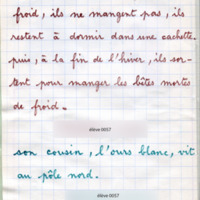 froid, ils ne mangent pas, ils
restent à dormir dans une cachette.
puis, à la fin de l'hiver, ils sor-
tent pour manger les bêtes mortes
de froid.
élève 0017
son cousin, l'ours blanc, vit
au pôle nord.
élève 0017